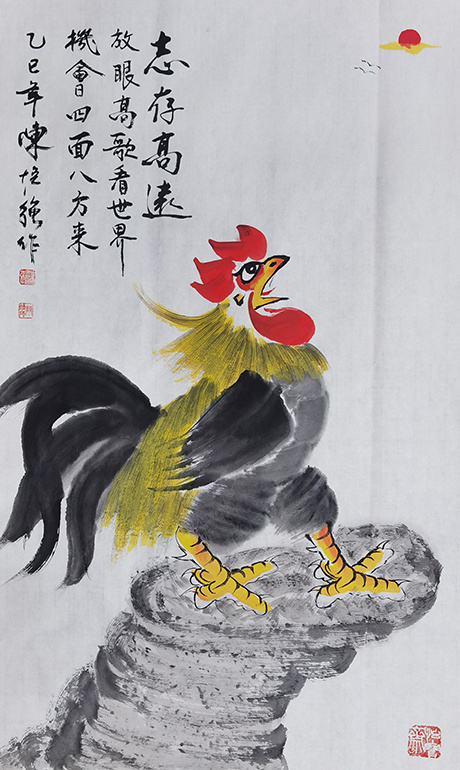 志存高遠
放眼高歌看世界
機會四面八方来
乙巳年陳培強作